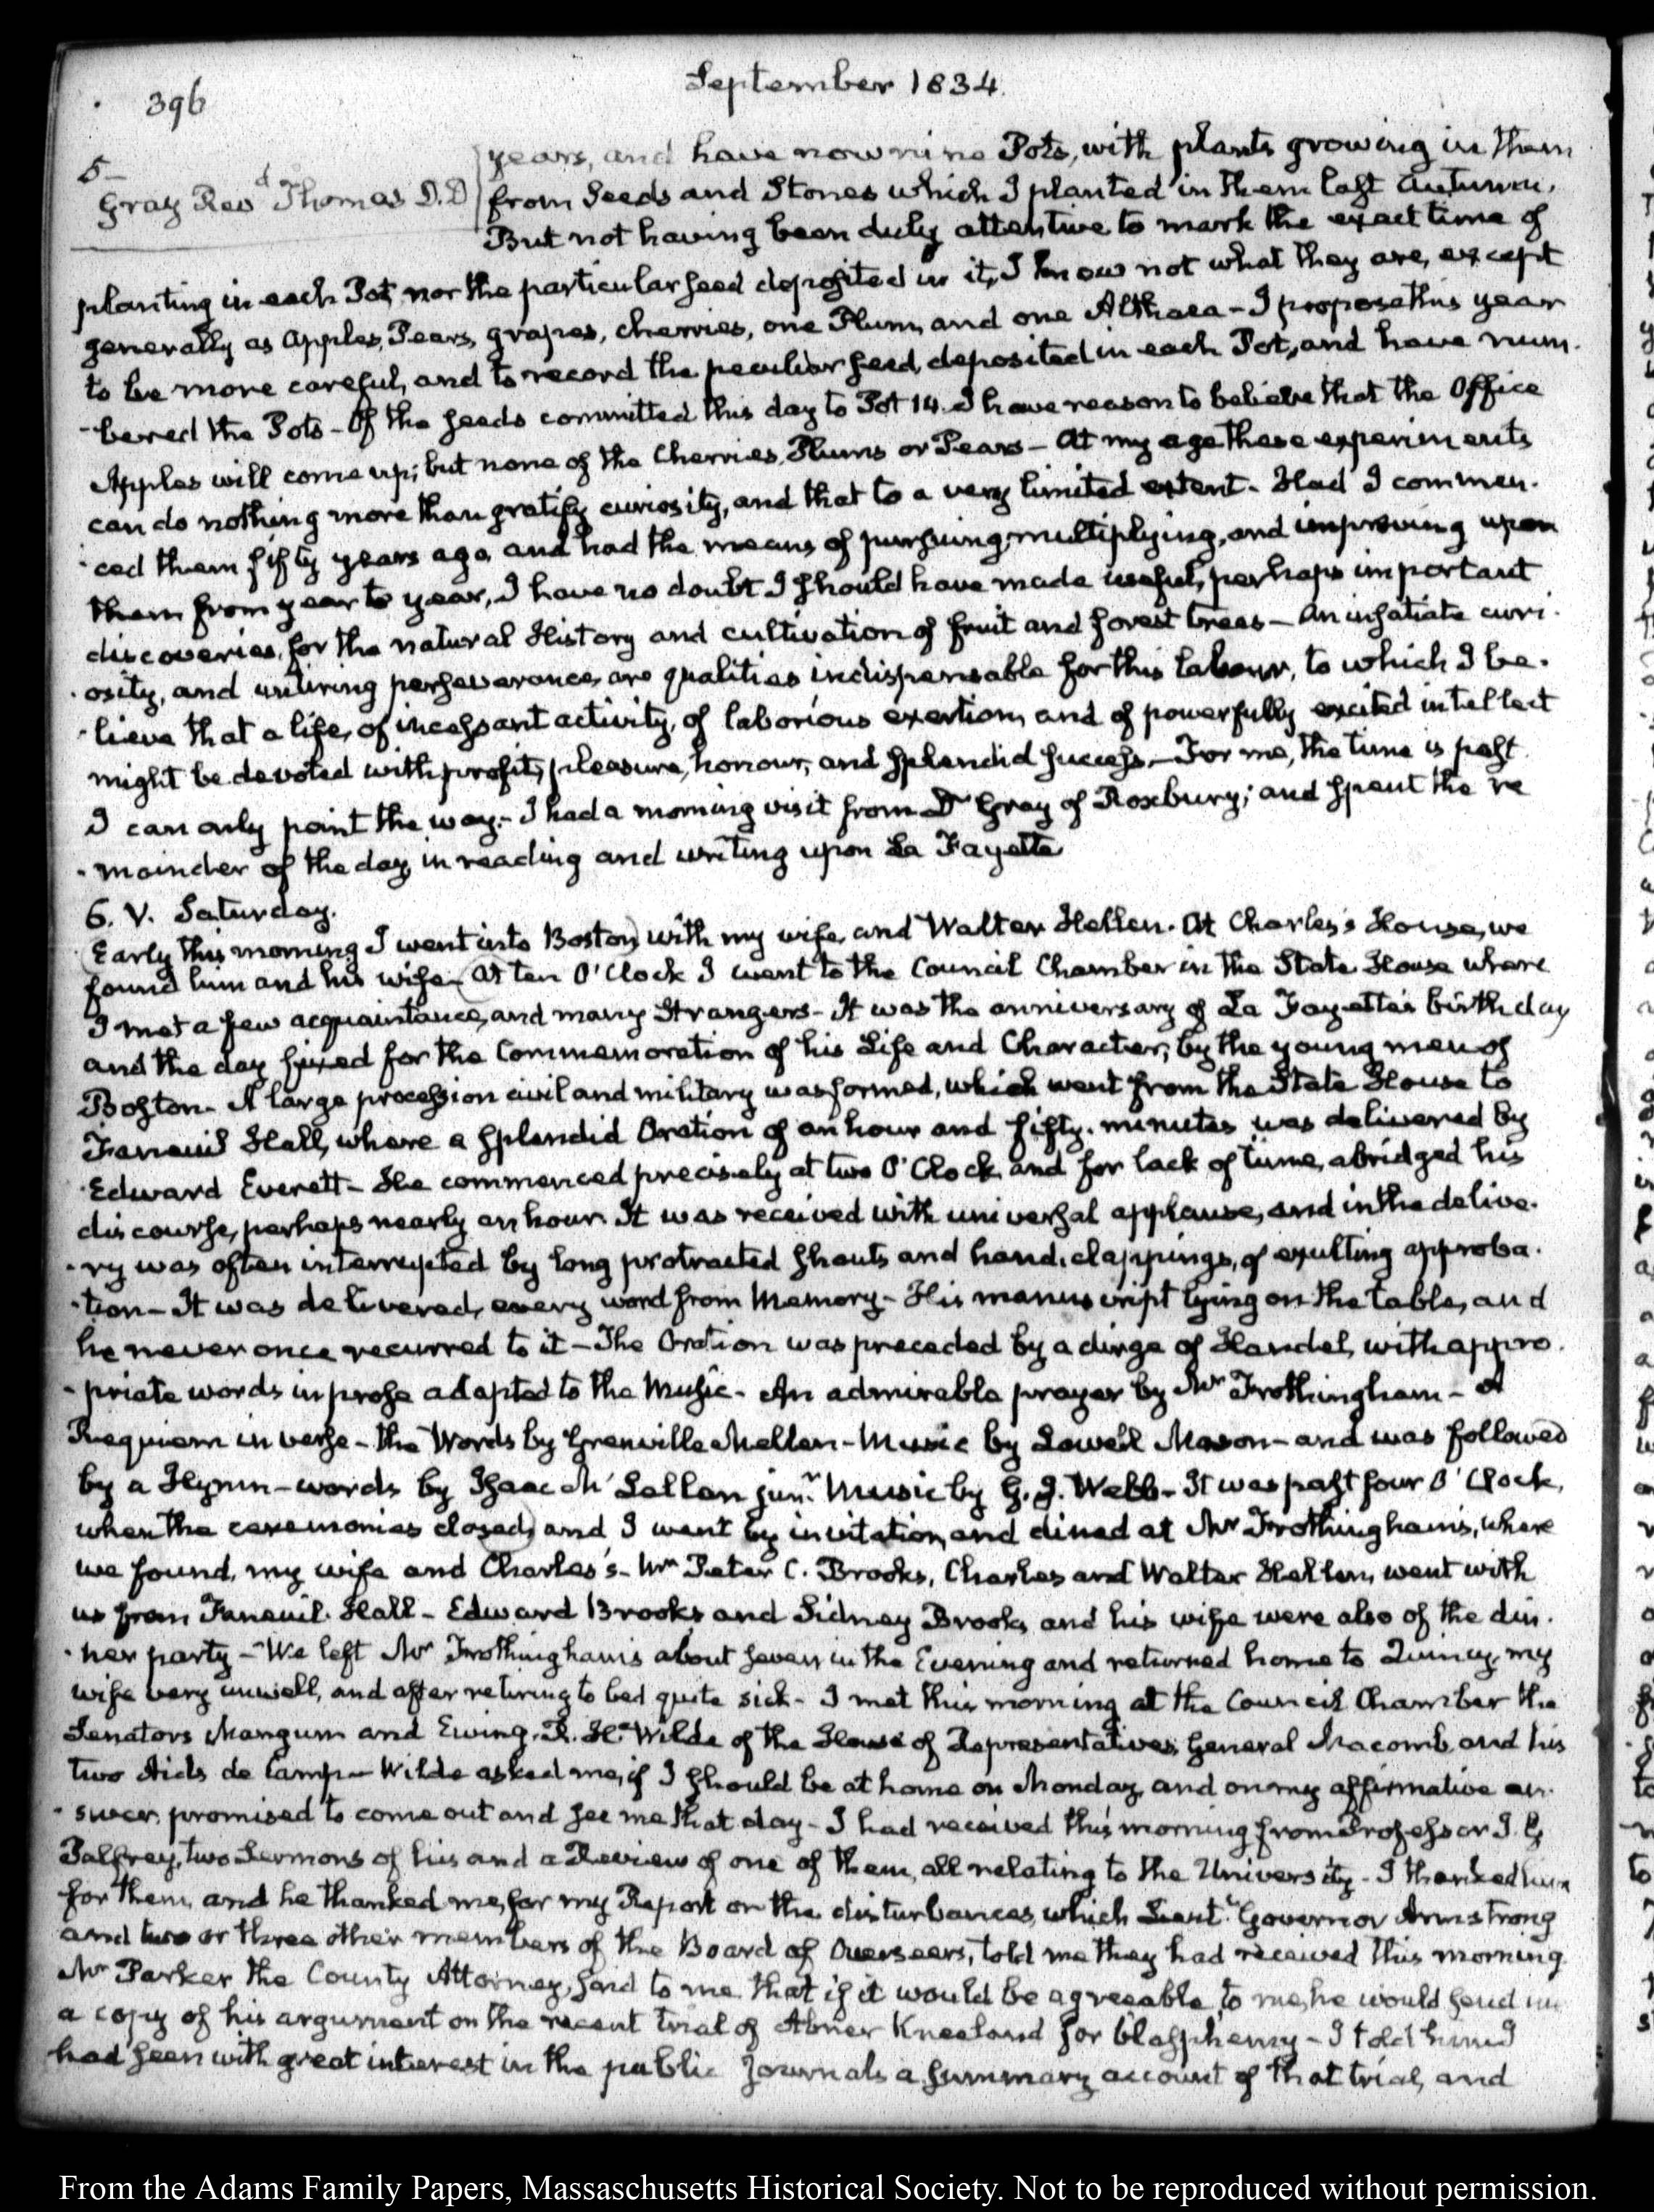 396
September 1834.
5-
Gray Revd Thomas D.D
years, and have now nine Pots, with plants growing in them
from Seeds and Stones which I planted in them last Autumn.
But not having been duly attentive to mark the exact time of
planting in each Pot, nor the particular seed deposited in it, I know not what they are, except
generally as Apples, Pears, grapes, cherries, one Plum, and one Althaea - I propose this year
to be more careful, and to record the peculiar seed, deposited in each Pot, and have num-
-bered the Pots - Of the seeds committed this day to Pot 14. I have reason to believe that the Office
Apples will come up; but none of the Cherries, Plums or Pears - At my age these experiments
can do nothing more than gratify curiosity, and that to a very limited extent. Had I commen-
-ced them fifty years ago, and had the means of pursuing, multiplying, and improving upon
them from year to year, I have no doubt I should have made useful, perhaps important
discoveries, for the natural History and cultivation of fruit and forest trees - An insatiate curi-
-osity, and untiring perseverance, are qualities indispensable for this labour, to which I be-
-lieve that a life, of incessant activity, of laborious exertion, and of powerfully excited intellect
might be devoted with profit, pleasure, honour, and splendid success. - For me, the time is past.
I can only point the way. - I had a morning visit from Dr Gray of Roxbury; and spent the re
-mainder of the day, in reading and writing upon La Fayette
6. V. Saturday.
Early this morning I went into Boston, with my wife, and Walter Hellen. At Charles's House, we
found him and his wife - At ten O'Clock I went to the Council Chamber in the State House where
I met a few acquaintance, and many Strangers - It was the anniversary of La Fayette's birth day
and the day fixed for the Commemoration of his Life and Character, by the young men of
Boston - A large procession civil and military was formed, which went from the State House to
Faneuil Hall, where a splendid Oration of an hour and fifty minutes was delivered by
Edward Everett - He commenced precisely at two O'Clock, and for lack of time, abridged his
discourse, perhaps nearly an hour. It was received with universal applause, and in the delive-
-ry was often interrupted by long protracted shouts and hand-clappings, of exulting approba-
-tion - It was delivered, every word from Memory - His manuscript lying on the table, and
he never once recurred to it - The Oration was preceded by a dirge of Handel, with appro-
-priate words in prose adapted to the Music - An admirable prayer by Mr Frothingham - A
Requiem in verse - the Words by Grenville Mellen - Music by Lowell Mason - and was followed
by a Hymn - words by Isaac Mc Lellan junr. Music by G. J. Webb - It was past four O'Clock,
when the ceremonies closed, and I went by invitation, and dined at Mr Frothingham's, where
we found, my wife and Charles's - Mr Peter C. Brooks, Charles and Walter Hellen, went with
us from Faneuil Hall - Edward Brooks and Sidney Brooks and his wife were also of the din-
-ner party - We left Mr Frothingham's about seven in the Evening and returned home to Quincy, my
wife very unwell, and after retiring to bed quite sick - I met this morning at the Council Chamber the
Senators Mangum and Ewing, R. H. Wilde of the House of Representatives, General Macomb, and his
two Aids de Camp - Wilde asked me, if I should be at home on Monday, and on my affirmative an-
-swer, promised to come out and see me that day - I had received this morning from Professor J. G
Palfrey, two Sermons of his and a Review of one of them, all relating to the University - I thanked him
for them, and he thanked me, for my Report on the disturbances, which Lieut. Governor Armstrong
and two or three other members of the Board of Overseers, told me they had received this morning.
Mr Parker the County Attorney, said to me that if it would be agreeable to me, he would send me
a copy of his argument on the recent trial of Abner Kneeland for blasphemy - I told him I
had seen with great interest in the public Journals a summary account of that trial, and
From the Adams Family Papers, Massachusetts Historical Society. Not to be reproduced without permission.